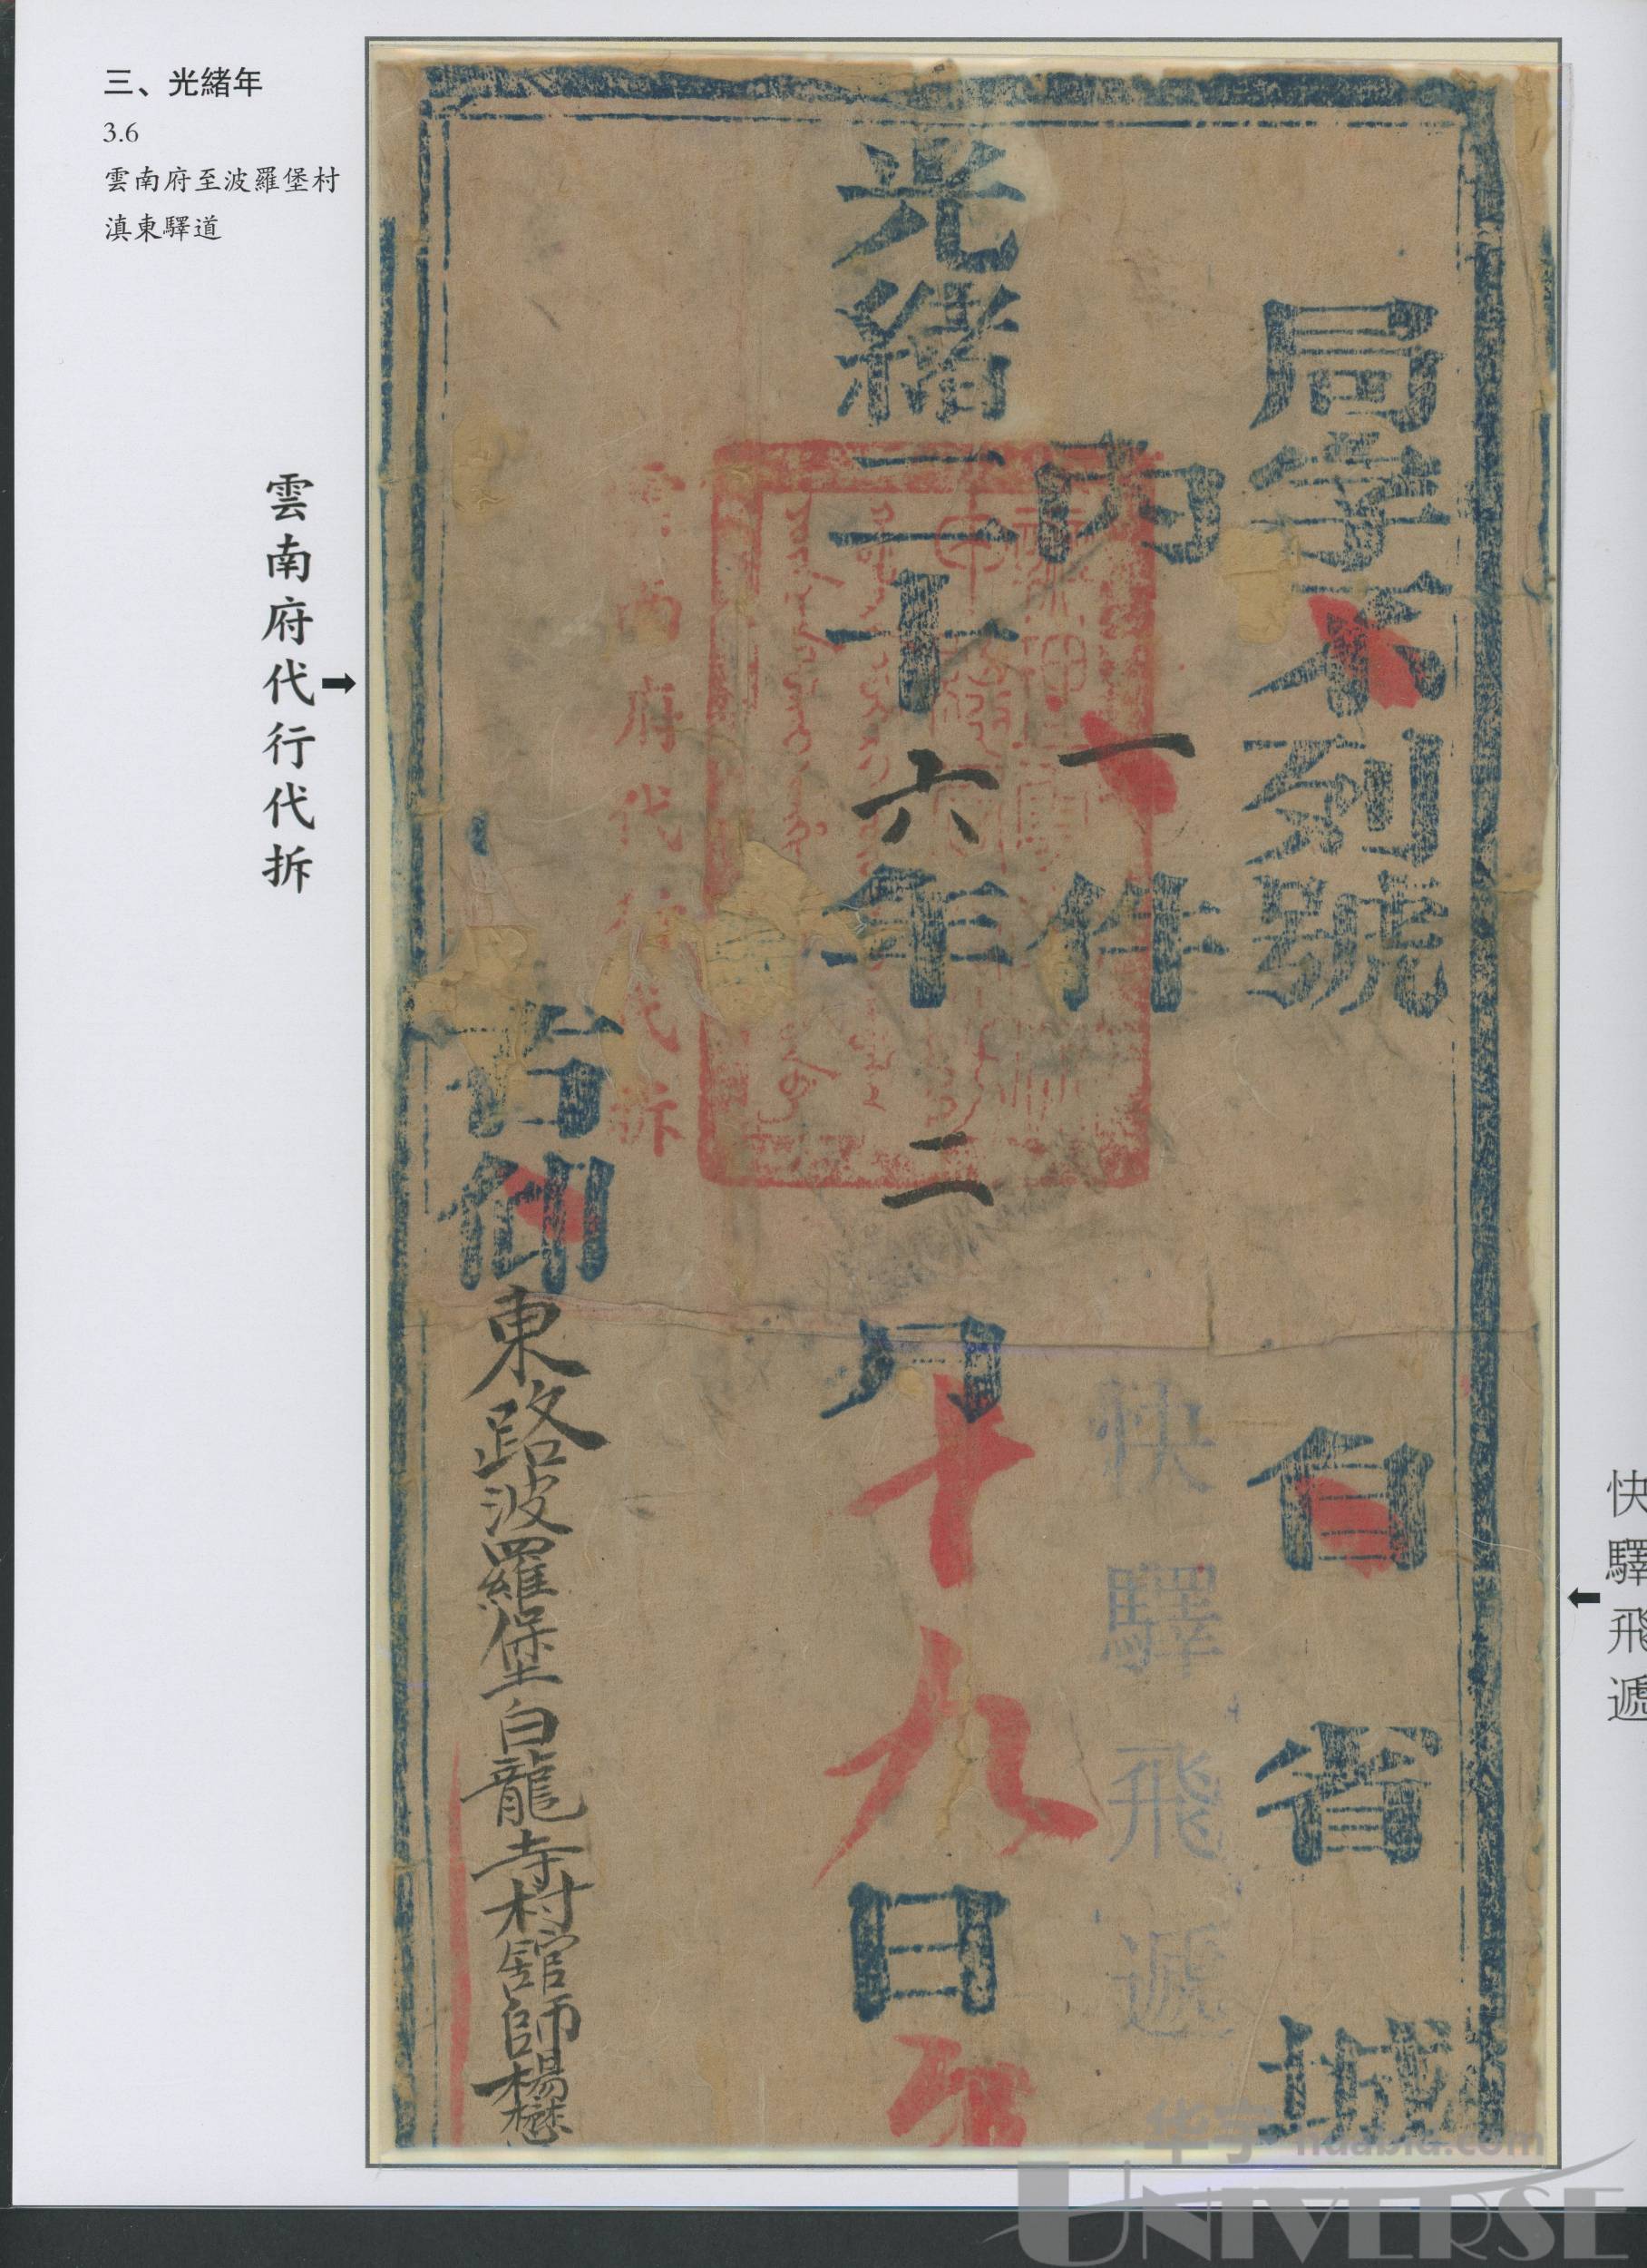 三、光緒年
3.6
雲南府至波羅堡村
滇東驛道
雲南府代行代拆
快驛飛遞
局字不列號
自省城
內一件
快驛飛遞
光緒二十六年二月十九日
雲南府代行代拆
右仰東路波羅堡白龍寺村舘師楊懋
华宇 huabid.com
UNIVERSE